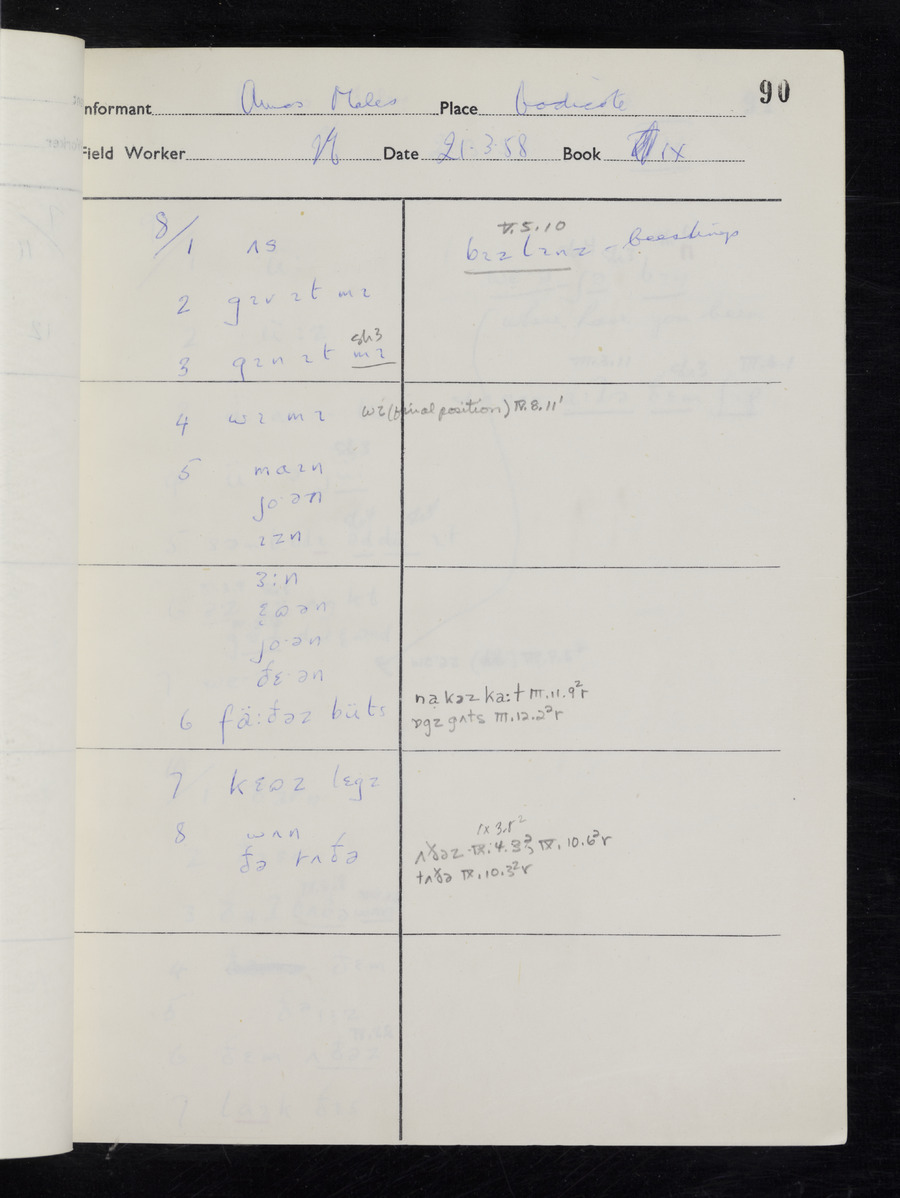 90
nformant Amos Males Place Bodicote
Field Worker Date 21.3.58 Book IX
8/1 ʌs
V.5.10
bɪəlɪnz – beestings
2 gɪv ɪt mɪ
3 gɪn ɪt mɪ
sh3
4 wɪ mɪ wɪ (final position) IV.8.11'
5 maɪn
jo·ən
ɪzn
ɜ:n
ɛ̣ɷən
jo·ən
ðɛ·ən
6 fä:ðəz büts
nạkəz ka:t III.11.9²r
ɒgz gʌts III.12.2²r
7 kɛɷz lɛgz
8 wʌn
ðə tʌðə
IX 3.5²
ʌðəz IX.4.9², IX.10.6²r
tʌðə IX.10.3²r